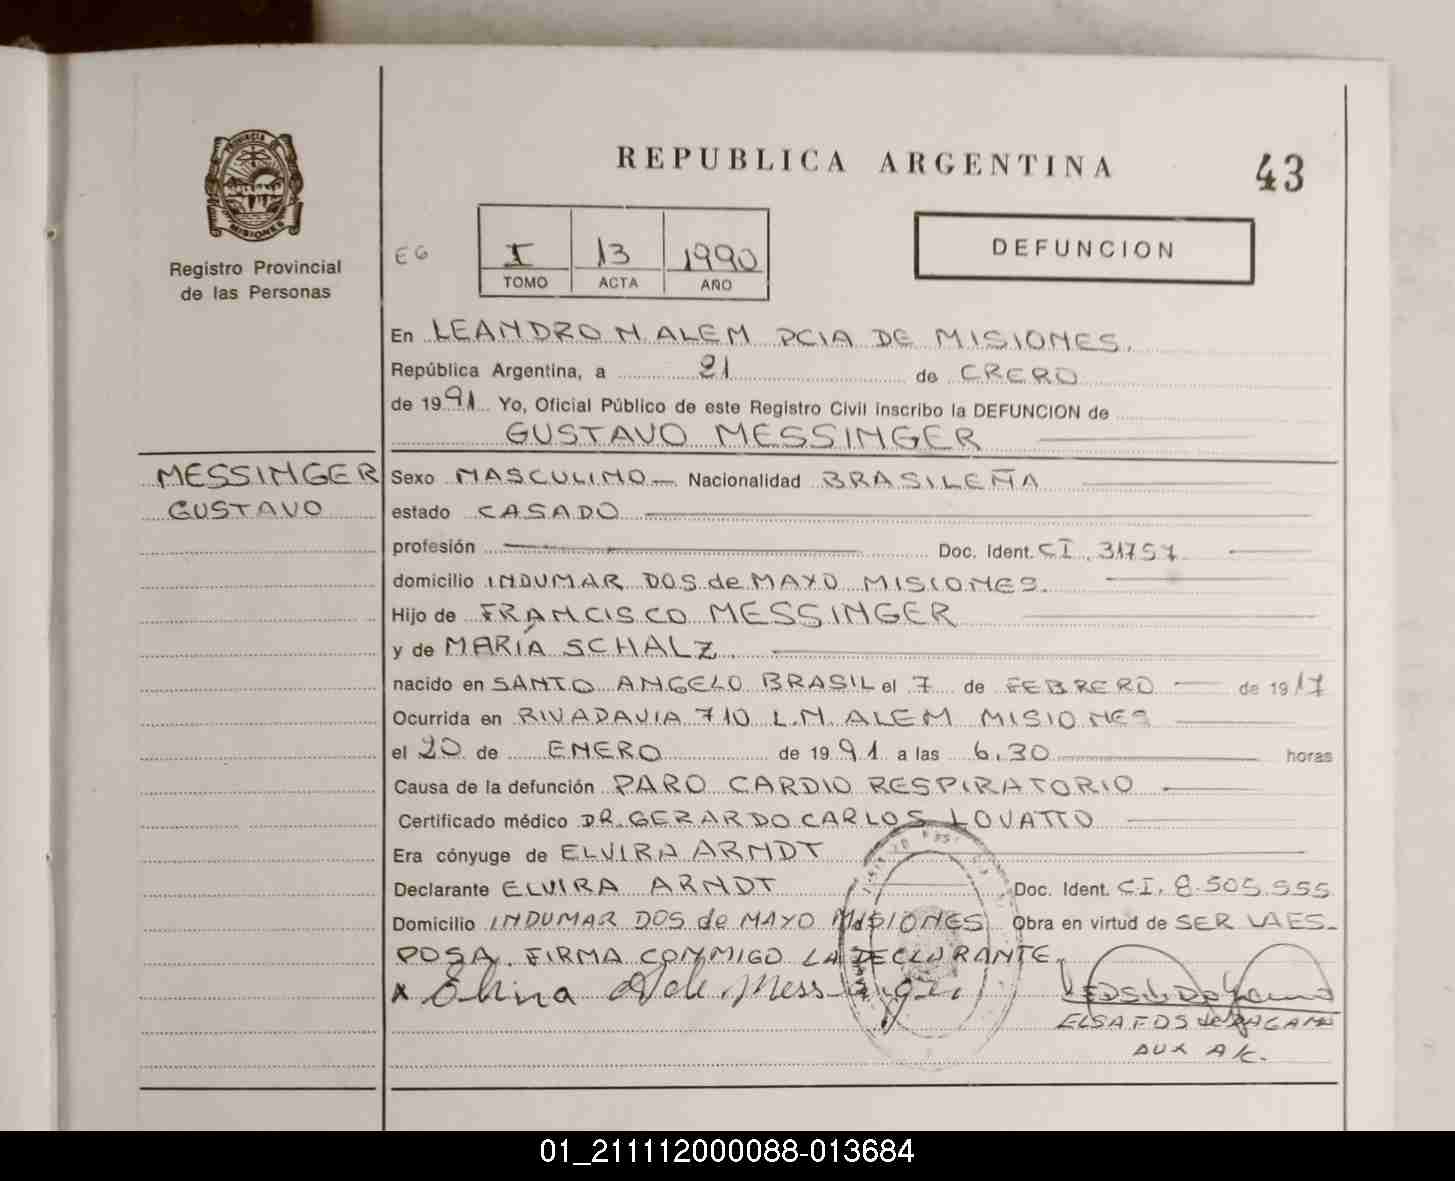 REPUBLICA ARGENTINA
43
PROVINCIA DE
MISIONES
Registro Provincial
de las Personas
EG
I 13 1990
TOMO ACTA AÑO
DEFUNCION
En LEANDRO N. ALEM PCIA DE MISIONES.
República Argentina, a 21 de ERERO
de 1991 Yo, Oficial Público de este Registro Civil inscribo la DEFUNCION de
GUSTAVO MESSINGER
MESSINGER
GUSTAVO
Sexo MASCULINO Nacionalidad BRASILEÑA
estado CASADO
profesión Doc. Ident. CI. 31757
domicilio INDUMAR DOS de MAYO MISIONES.
Hijo de FRANCISCO MESSINGER
y de MARÍA SCHALZ.
nacido en SANTO ANGELO BRASIL el 7 de FEBRERO de 1917
Ocurrida en RIVADAVIA 710 L.N. ALEM MISIONES
el 20 de ENERO de 1991 a las 6.30 horas
Causa de la defunción PARO CARDIO RESPIRATORIO
Certificado médico DR. GERARDO CARLOS LOVATTO
Era cónyuge de ELVIRA ARNDT
Declarante ELVIRA ARNDT Doc. Ident. C.I. 8.505.555
Domicilio INDUMAR DOS de MAYO MISIONES Obra en virtud de SER LA ES-
POSA. FIRMA CONMIGO LA DECLARANTE.
x Elvira A de Messinger
ELSA F. DS de
AUX
01_211112000088-013684